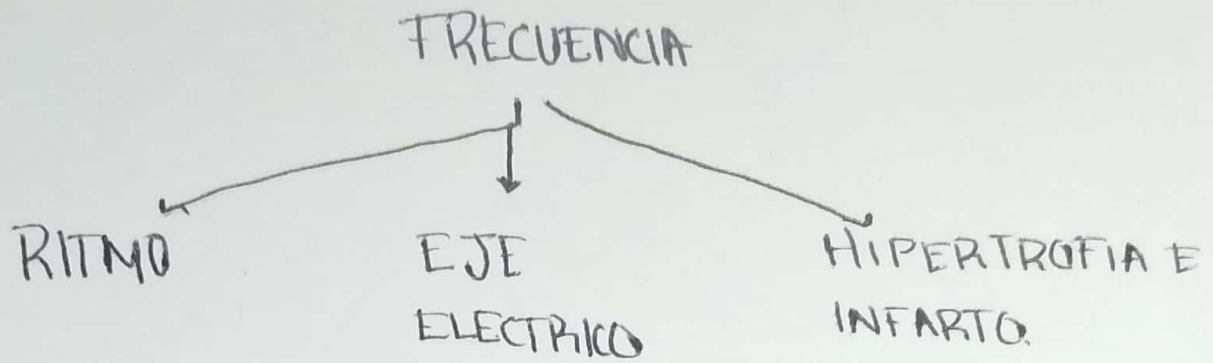 FRECUENCIA
RITMO
EJE
ELECTRICO
HIPERTROFIA E
INFARTO.